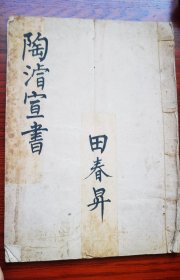 陶濬宣書
田春昇